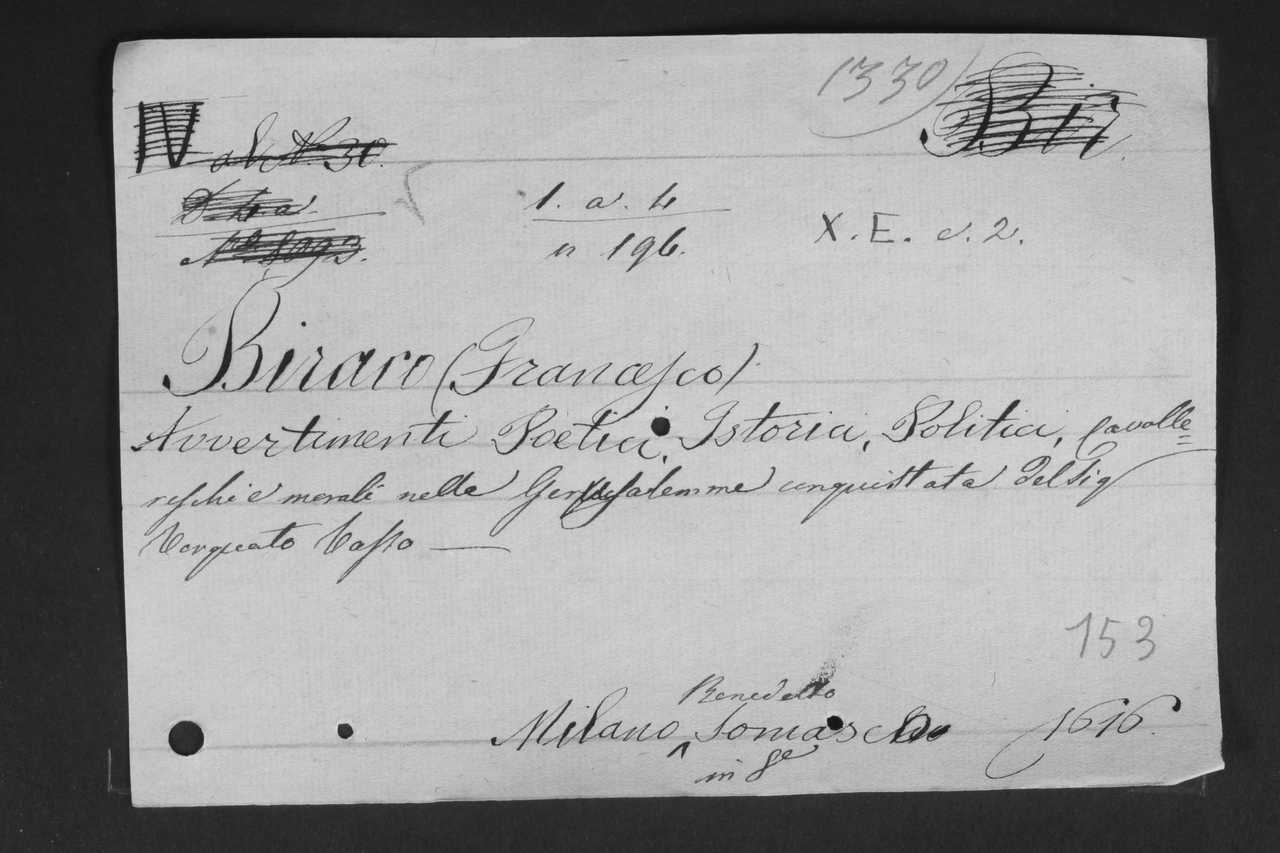 1330)
Bir
IV
N.º 30.
1. a. 4
n 196.
X. E. c. 2.
Biraco (Francesco)
Avvertimenti Poetici, Istorici, Politici, Cavalle=
reschi e morali nella Gerusalemme conquistata del Sig
Torquato Tasso —
153
Benedetto
Milano ^ Somasco 1616.
in 8º